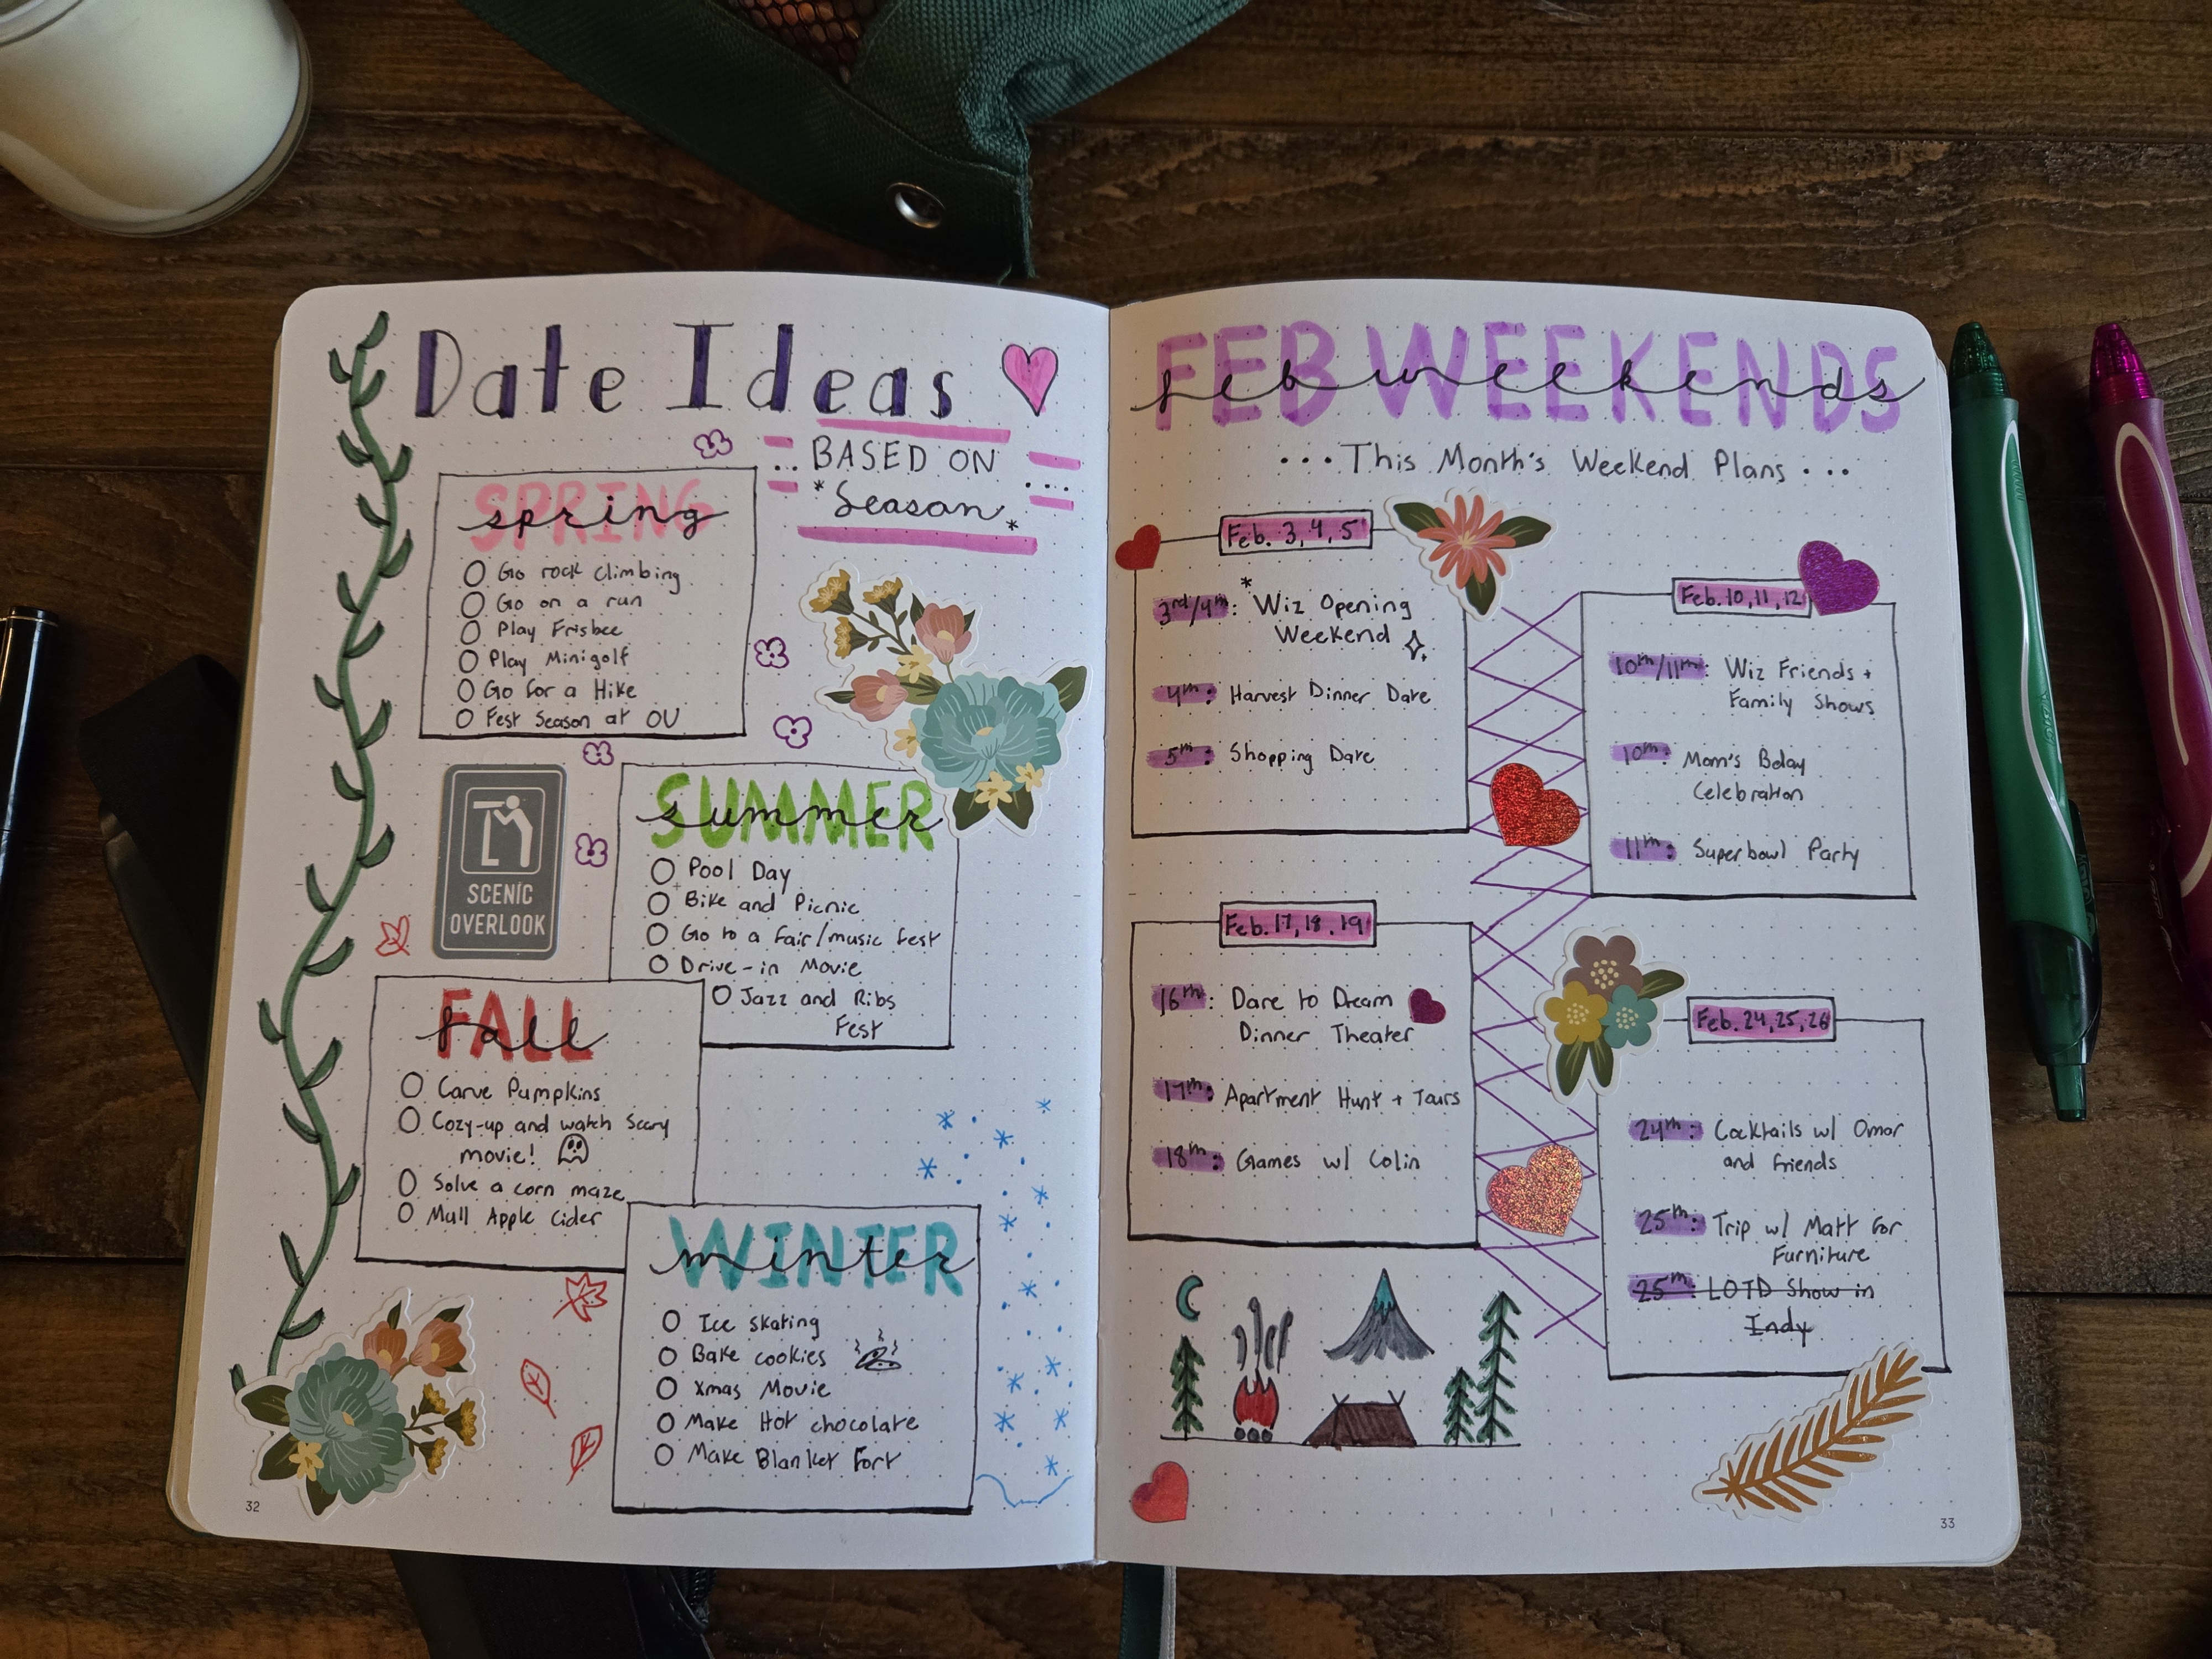 Date Ideas
BASED ON
*Season*
SPRING
spring
Go rock climbing
Go on a run
Play Frisbee
Play Minigolf
Go for a Hike
Fest Season at OU
SCENIC
OVERLOOK
SUMMER
summer
Pool Day
Bike and Picnic
Go to a fair/music fest
Drive-in Movie
Jazz and Ribs
Fest
FALL
fall
Carve Pumpkins
Cozy-up and watch Scary
movie!
Solve a corn maze
Mull Apple Cider
WINTER
winter
Ice skating
Bake cookies
Xmas Movie
Make Hot chocolate
Make Blanket Fort
32
FEB WEEKENDS
feb weekends
...This Month's Weekend Plans...
Feb. 3, 4, 5
3rd/4th: *Wiz Opening
Weekend
4th: Harvest Dinner Date
5th: Shopping Date
Feb. 10, 11, 12
10th/11th: Wiz Friends +
Family Shows
10th: Mom's Bday
Celebration
11th: Superbowl Party
Feb. 17, 18, 19
16th: Dare to Dream
Dinner Theater
17th: Apartment Hunt + Tours
18th: Games w/ Colin
Feb. 24, 25, 26
24th: Cocktails w/ Omar
and friends
25th: Trip w/ Matt for
Furniture
25th: LOTD Show in
Indy
33